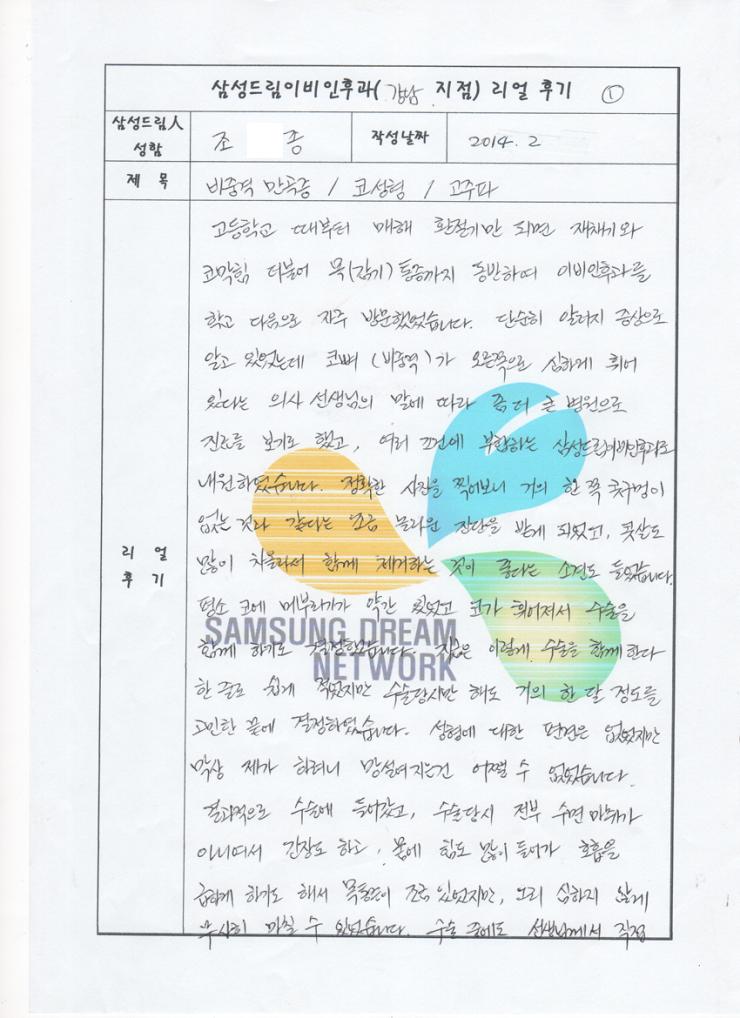 삼성드림이비인후과(강남 지점) 리얼 후기 ①
삼성드림人 성함
조 증
작성날짜
2014. 2
제 목
비중격 만곡증 / 코성형 / 고주파
리 얼 후 기
고등학교 때부터 매해 환절기만 되면 재채기와
코막힘 더불어 목(감기)통증까지 동반하여 이비인후과를
학교 다음으로 자주 방문했었습니다. 단순히 알러지 증상으로
알고 있었는데 코뼈 (비중격)가 오른쪽으로 심하게 휘어
있다는 의사 선생님의 말에 따라 좀 더 큰 병원으로
진료를 보기로 했고, 여러 조건에 부합하는 삼성드림이비인후과로
내원하였습니다. 정확한 사진을 찍어보니 거의 한 쪽 콧구멍이
없는 것과 같다는 조금 놀라운 진단을 받게 되었고, 콧살도
많이 차올라서 함께 제거하는 것이 좋다는 소견도 들었습니다.
평소 코에 메부리가 약간 있었고 코가 휘어져서 수술을
함께 하기로 결정했습니다. 지금은 이렇게 수술을 함께 한다
한 줄로 쉽게 적었지만 수술당시만 해도 거의 한 달 정도를
고민한 끝에 결정하였습니다. 성형에 대한 편견은 없었지만
막상 제가 하려니 망설여지는건 어쩔 수 없었습니다.
결과적으로 수술에 들어갔고, 수술당시 전부 수면 마취가
아니여서 긴장도 하고, 몸에 힘도 많이 들어가 호흡을
급하게 하기도 해서 목통증이 조금 있었지만, 그리 심하지 않게
무사히 마칠 수 있었습니다. 수술 중에도 선생님께서 직접
SAMSUNG DREAM
NETWORK